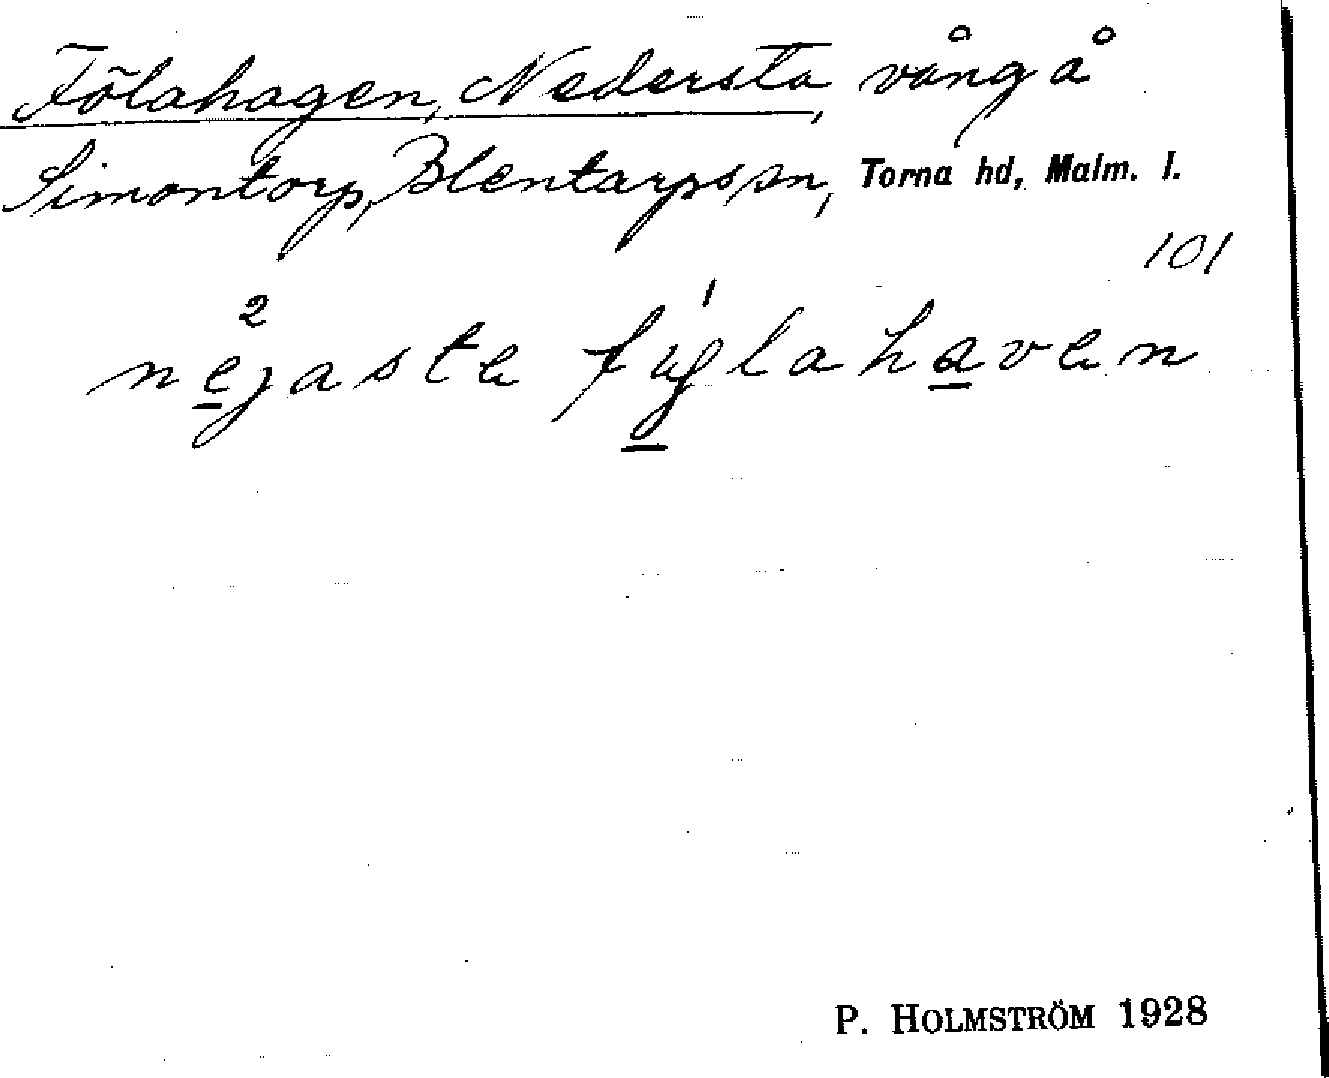 Fölahagen, Nedersta, vång å
Simontorp, Blentarps sn, Torna hd, Malm. l.
101
nejaste fuglahaven
P. HOLMSTRÖM 1928